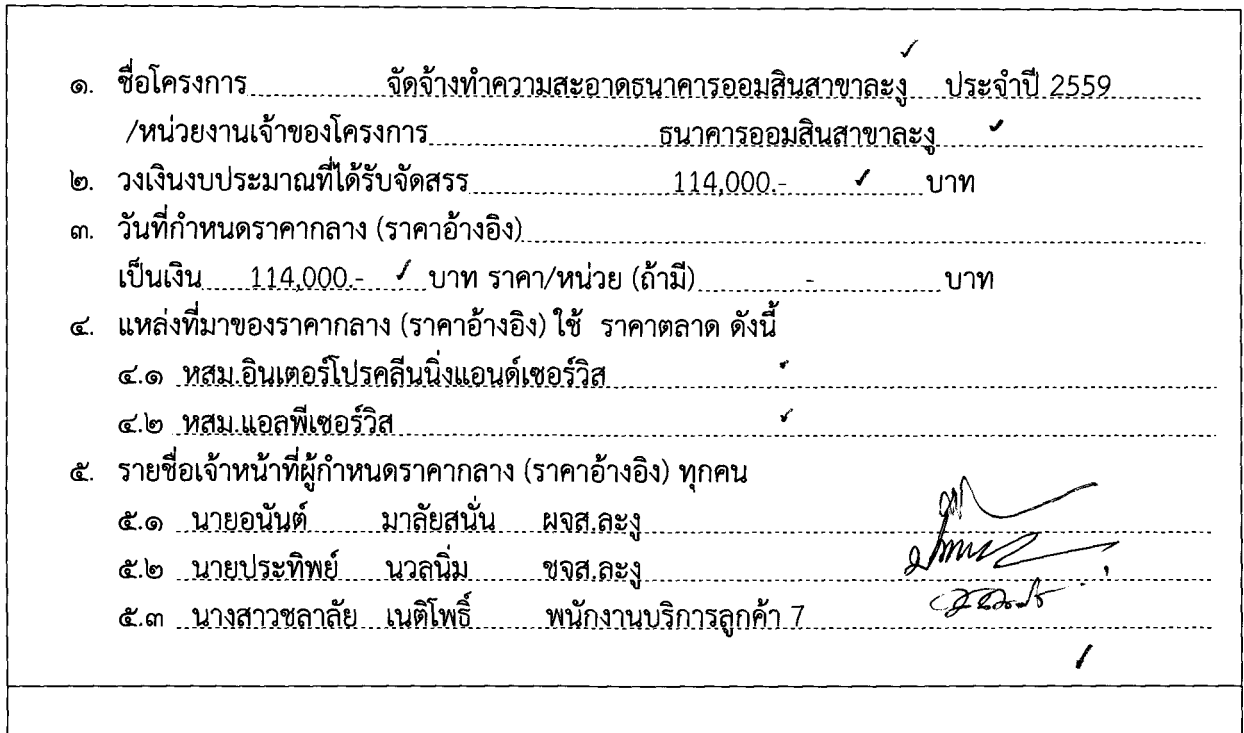 ๑. ชื่อโครงการ จัดจ้างทำความสะอาดธนาคารออมสินสาขาละงู ประจำปี 2559
/หน่วยงานเจ้าของโครงการ ธนาคารออมสินสาขาละงู
๒. วงเงินงบประมาณที่ได้รับจัดสรร 114,000.- บาท
๓. วันที่กำหนดราคากลาง (ราคาอ้างอิง)
เป็นเงิน 114,000.- บาท ราคา/หน่วย (ถ้ามี) - บาท
๔. แหล่งที่มาของราคากลาง (ราคาอ้างอิง) ใช้ ราคาตลาด ดังนี้
๔.๑ หสม.อินเตอร์โปรคลีนนิ่งแอนด์เซอร์วิส
๔.๒ หสม.แอลพีเซอร์วิส
๕. รายชื่อเจ้าหน้าที่ผู้กำหนดราคากลาง (ราคาอ้างอิง) ทุกคน
๕.๑ นายอนันต์ มาลัยสนั่น ผจส.ละงู
๕.๒ นายประทิพย์ นวลนิ่ม ชจส.ละงู
๕.๓ นางสาวชลาลัย เนติโพธิ์ พนักงานบริการลูกค้า 7